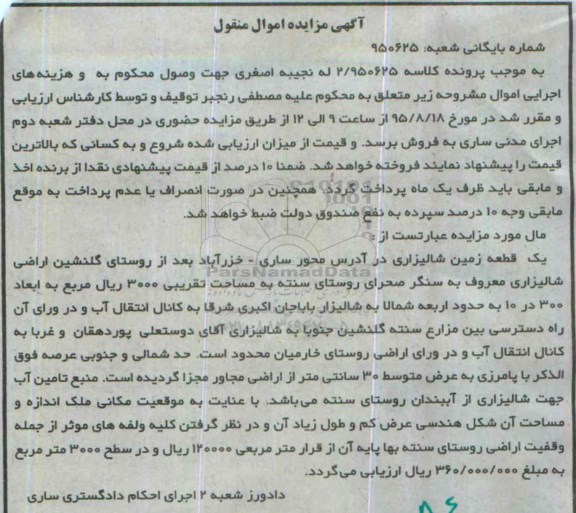 آگهی مزایده اموال منقول
شماره بایگانی شعبه: ۹۵۰۶۲۵
به موجب پرونده کلاسه ۲/۹۵۰۶۲۵ له نجیبه اصغری جهت وصول محکوم به و هزینه های
اجرایی اموال مشروحه زیر متعلق به محکوم علیه مصطفی رنجبر توقیف و توسط کارشناس ارزیابی
و مقرر شد در مورخ ۹۵/۸/۱۸ از ساعت ۹ الی ۱۲ از طریق مزایده حضوری در محل دفتر شعبه دوم
اجرای مدنی ساری به فروش برسد. و قیمت از میزان ارزیابی شده شروع و به کسانی که بالاترین
قیمت را پیشنهاد نمایند فروخته خواهد شد. ضمنا ۱۰ درصد از قیمت پیشنهادی نقدا از برنده اخذ
و مابقی باید ظرف یک ماه پرداخت گردد. همچنین در صورت انصراف یا عدم پرداخت به موقع
مابقی وجه ۱۰ درصد سپرده به نفع صندوق دولت ضبط خواهد شد.
مال مورد مزایده عبارتست از :
یک قطعه زمین شالیزاری در آدرس محور ساری - خزرآباد بعد از روستای گلنشین اراضی
شالیزاری معروف به سنگر صحرای روستای سنته به مساحت تقریبی ۳۰۰۰ ریال مربع به ابعاد
۳۰۰ در ۱۰ به حدود اربعه شمالا به شالیزار باباجان اکبری شرقا به کانال انتقال آب و در ورای آن
راه دسترسی بین مزارع سنته گلنشین جنوبا به شالیزاری آقای دوستعلی پوردهقان و غربا به
کانال انتقال آب و در ورای اراضی روستای خارمیان محدود است. حد شمالی و جنوبی عرصه فوق
الذکر با پامرزی به عرض متوسط ۳۰ سانتی متر از اراضی مجاور مجزا گردیده است. منبع تامین آب
جهت شالیزاری از آببندان روستای سنته می باشد. با عنایت به موقعیت مکانی ملک اندازه و
مساحت آن شکل هندسی عرض کم و طول زیاد آن و در نظر گرفتن کلیه ولفه های موثر از جمله
وقفیت اراضی روستای سنته بها پایه آن از قرار متر مربعی ۱۲۰۰۰۰ ریال و در سطح ۳۰۰۰ متر مربع
به مبلغ ۳۶۰/۰۰۰/۰۰۰ ریال ارزیابی می گردد.
دادورز شعبه ۲ اجرای احکام دادگستری ساری
ParsNamadData